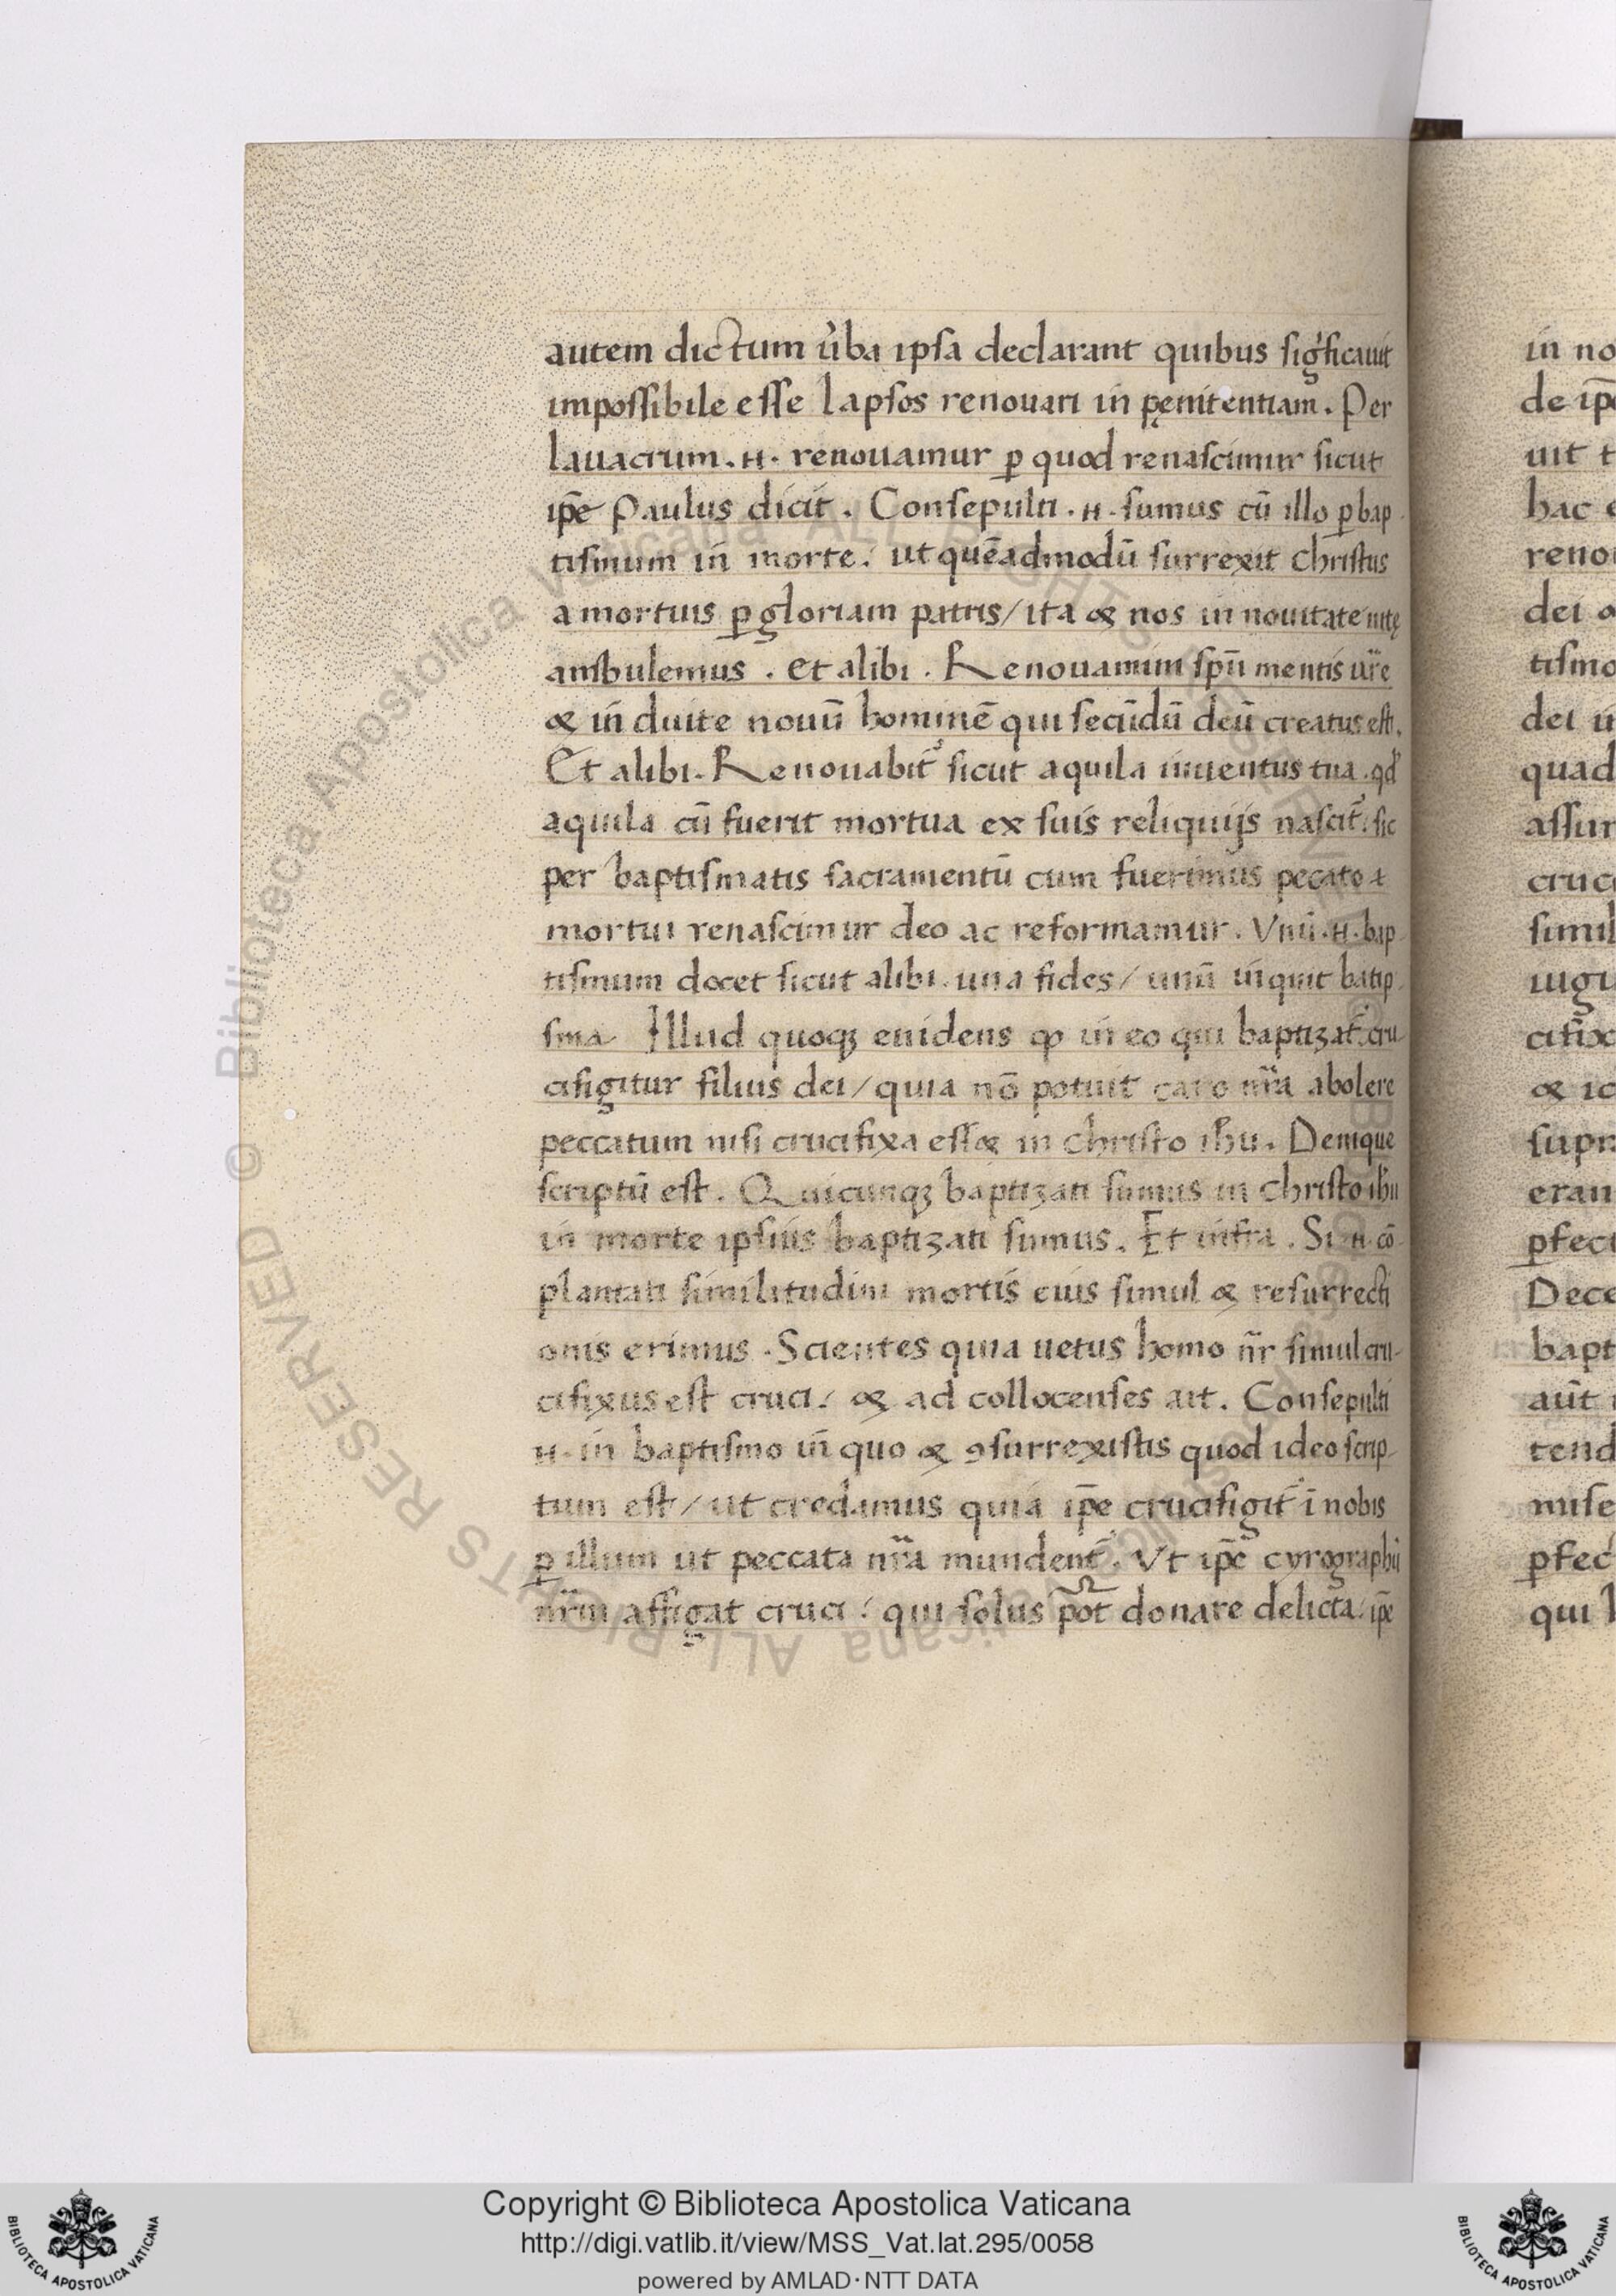 autem dictum u̓ba ipsa declarant quibus sig̓ficauit
impossibile esse lapsos renouari in pęnitentiam. Per
lauacrum. H. renouamur ꝑ quod renascimur sicut
ip̄e Paulus dicit. Consepulti. H. sumus cū illo ꝑ bap
tismum in morte: ut quēadmodū surrexit christus
a mortuis ꝑ gloriam patris/ ita & nos in nouitate uitę
ambulemus. et alibi. Renouamini sp̄u mentis ur̄e
& induite nouū hominē qui secūdū deū creatus est.
Et alibi. Renouabit̄ sicut aquila iuuentus tua. qd̓
aquila cū fuerit mortua ex suis reliquijs nascit̄: sic
per baptismatis sacramentū cum fuerimus pecato
mortui renascimur deo ac reformamur. Vnū. H. bap
tismum docet sicut alibi. una fides/ unū inquit batip
sma Illud quoqꝫ euidens ꝙ in eo qui baptizat̄ cru-
cifigitur filius dei/ quia nō potuit caro nr̄a abolere
peccatum nisi crucifixa ess& in christo ihu. Denique
scriptū est. Quicunqꝫ baptizati sumus in christo ihu
in morte ipsius baptizati sumus. Et infra. Si. H. cō
plantati similitudini mortis eius simul & resurrecti
onis erimus. Scientes quia uetus homo nr̄ simul cru-
cifixus est cruci: & ad collocenses ait. Consepulti
H. in baptismo in quo & ꝯsurrexistis quod ideo scrip-
tum est/ ut credamus quia ip̄e crucifigit̄ ī nobis
ꝑ illum ut peccata nr̄a mundent̄. Vt ip̄e cyrographū
nr̄m affigat cruci: qui solus pōt donare delicta: ip̄e
in no
de ip̄
uit t
hac
reno
dei
tismo
dei
quad
assur
cruc
simil
iugu
cifix
& ic
supr
eran
ꝑfect
Dece
bapt
aūt
tend
mise
ꝑfec
qui
© Biblioteca Apostolica Vaticana ALL RIGHTS RESERVED
Copyright © Biblioteca Apostolica Vaticana
http://digi.vatlib.it/view/MSS_Vat.lat.295/0058
powered by AMLAD·NTT DATA
BIBLIOTECA APOSTOLICA VATICANA
BIBLIOTECA APOSTOLICA VATICANA